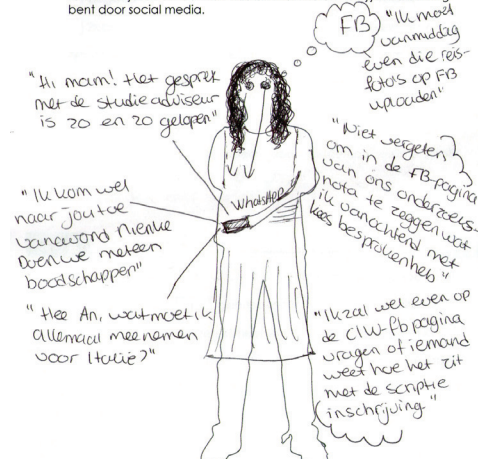 bent door social media.
FB
"Ik moet
vanmiddag
even die reis-
foto's op FB
uploaden"
"Hi mam! Het gesprek
met de studieadviseur
is zo en zo gelopen"
"Niet vergeten
om in de FB-pagina
van ons onderzoeks-
nota te zeggen wat
ik vanochtend met
Kees besproken heb"
WhatsApp
"Ik kom wel
naar jou toe
vanavond Nienke
Doen we meteen
boodschappen"
"Hee An, wat moet ik
allemaal meenemen
voor Italië?"
"Ik zal wel even op
de CIW-fb pagina
vragen of iemand
weet hoe het zit
met de scriptie
inschrijving"